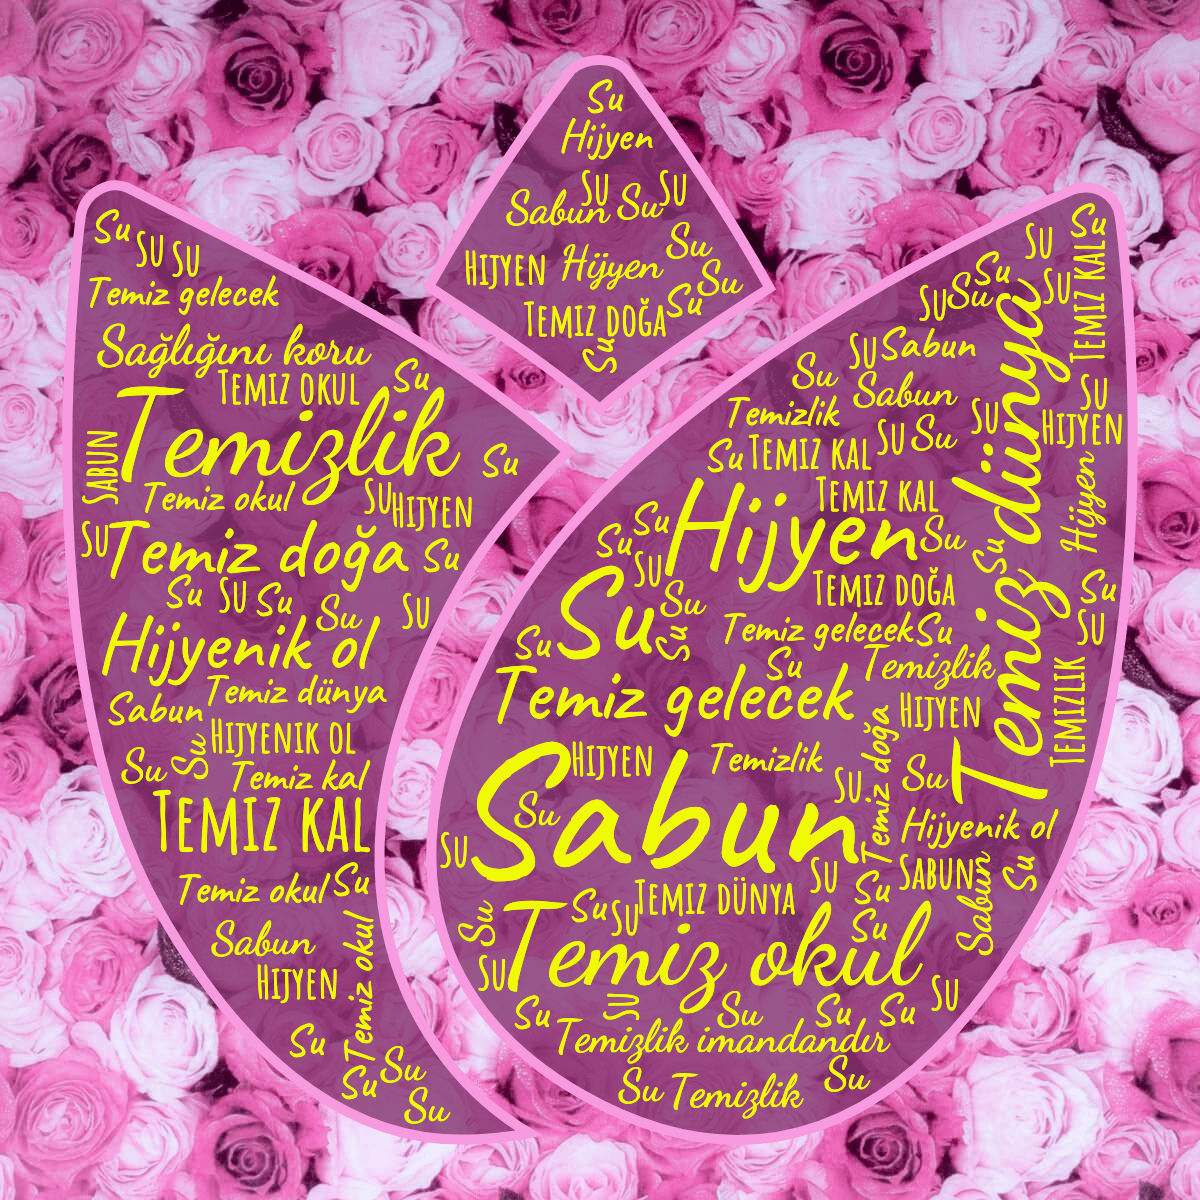 Su
Hijyen
SU
Sabun Su SU
HIJYEN Hijyen Su
Su
TEMIZ DOĞA Su
Su
Su SU SU
Temiz gelecek
Sağlığını koru
TEMIZ OKUL Su
Temizlik
SABUN
Su
Temiz okul SU HIJYEN
SU Temiz doğa Su
Su SU Su Su SU
Hijyenik ol
Temiz dünya
Sabun
HIJYENIK OL
Su Su
Temiz kal
TEMIZ KAL
Temiz okul Su
Sabun
HIJYEN
Temiz okul
Su
Su Su
Su
SU Su
TEMIZ KAL
Su SU
SU Su
SU Sabun
Su Sabun SU
Temizlik SU HIJYEN
SU Su
Su TEMIZ KAL
TEMIZ KAL
Hijyen
Temiz dünya
Su Hijyen Su
Su SU Su
TEMIZ DOĞA Su
Su Su
Su
Temiz gelecek Su SU
Su Su Temizlik
TEMIZLIK
Temiz gelecek HIJYEN
Temiz doğa
HIJYEN Temizlik
SU Su
Sabun
Su
Hijyenik ol
SU
SABUN Su
SU Su
Sabun
TEMIZ DÜNYA
Su SU
Su
Su
Temiz okul
SU SU
Su SU Su Su Su
Temizlik imandandır
Su Temizlik Su